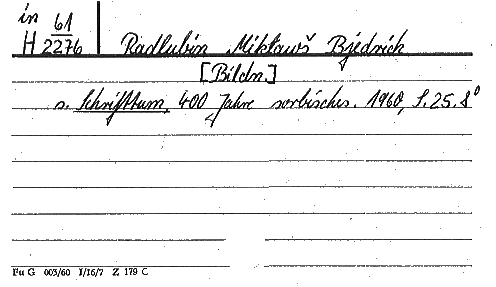 in 61
H 2276 Radlubin Mikławš Bjedrich
[Bildn.]
s. Schrifttum, 400 Jahre sorbisches. 1960, S. 25. 8°
Fu G 003/60 I/16/7 Z 179 C